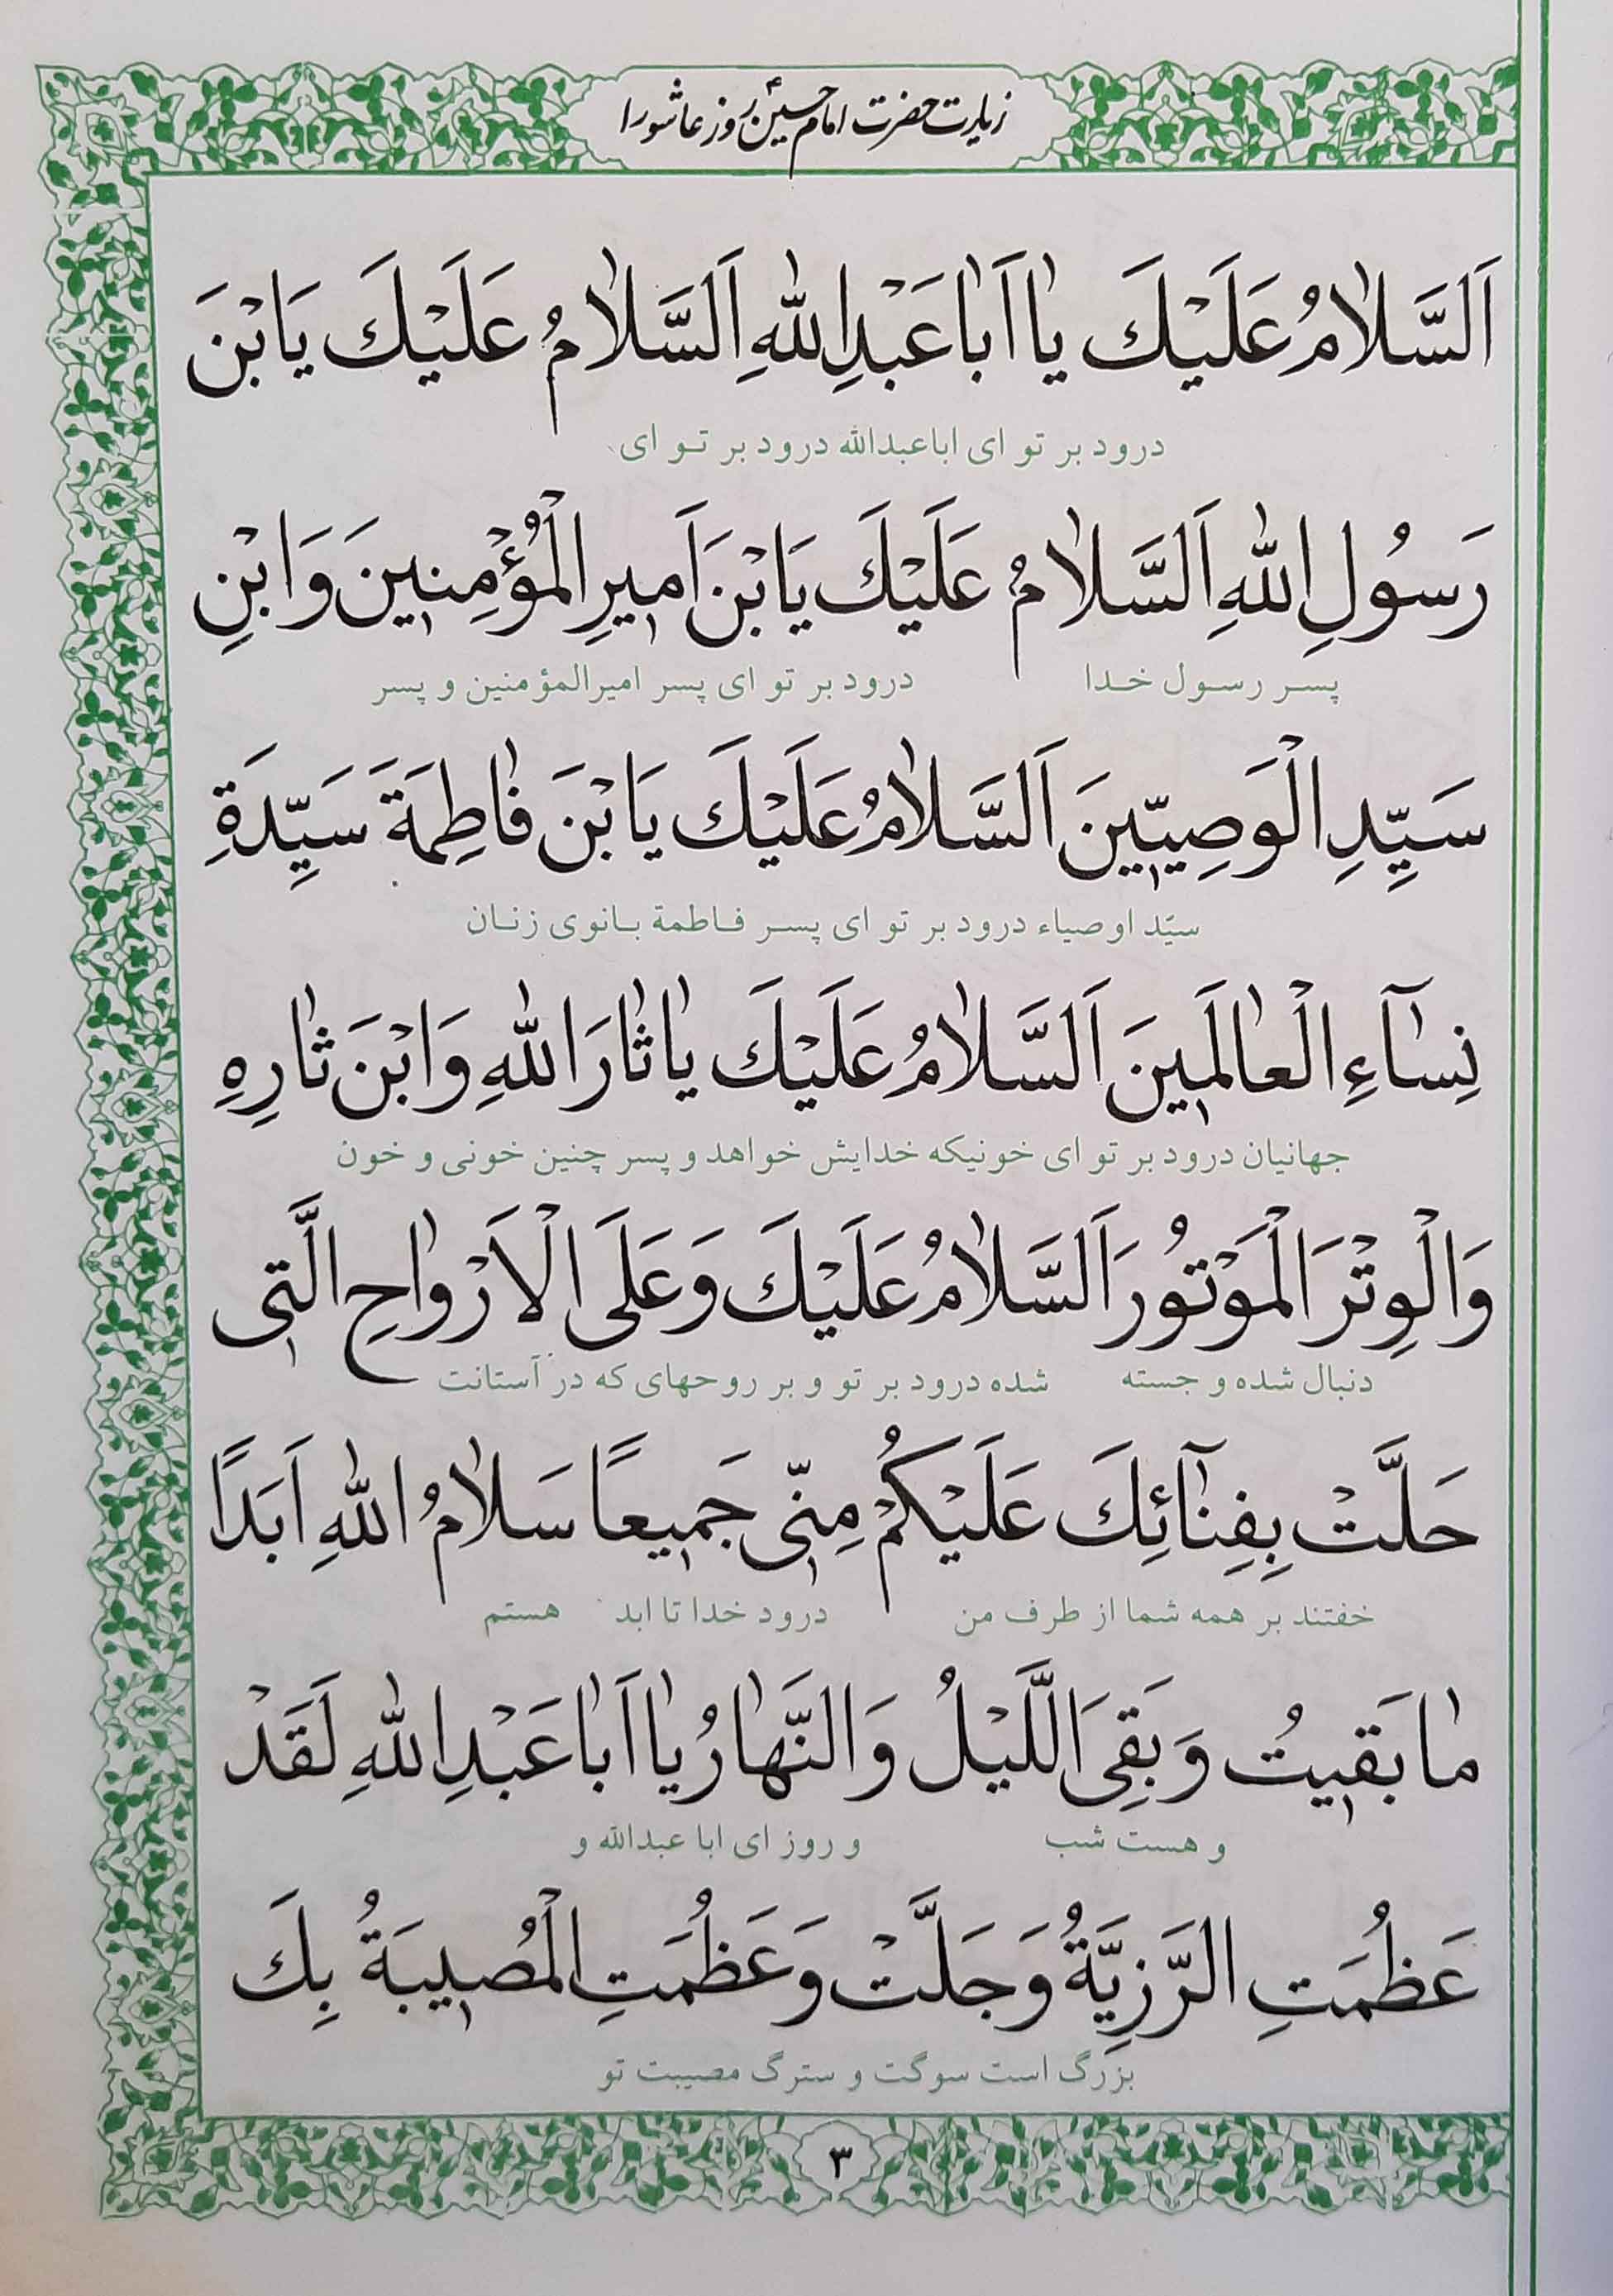 زیارت حضرت امام حسین ع روز عاشورا
اَلسَّلامُ عَلَيْكَ يا اَبا عَبْدِ اللّٰهِ اَلسَّلامُ عَلَيْكَ يَابْنَ
درود بر تو ای اباعبدالله درود بر تو ای
رَسُولِ اللّٰهِ اَلسَّلامُ عَلَيْكَ يَابْنَ اَميرِ الْمُؤْمِنينَ وَابْنِ
پسر رسول خدا درود بر تو ای پسر امیرالمؤمنین و پسر
سَيِّدِ الْوَصِيّينَ اَلسَّلامُ عَلَيْكَ يَابْنَ فاطِمَةَ سَيِّدَةِ
سیّد اوصیاء درود بر تو ای پسر فاطمة بانوی زنان
نِسآءِ الْعالَمينَ اَلسَّلامُ عَلَيْكَ يا ثارَ اللّٰهِ وَابْنَ ثارِهِ
جهانیان درود بر تو ای خونیکه خدایش خواهد و پسر چنین خونی و خون
وَالْوِتْرَ الْمَوْتُورَ اَلسَّلامُ عَلَيْكَ وَعَلَى الْاَرْواحِ الَّتى
دنبال شده و جسته شده درود بر تو و بر روحهای که در آستانت
حَلَّتْ بِفِنآئِكَ عَلَيْكُمْ مِنّى جَميعًا سَلامُ اللّٰهِ اَبَدًا
خفتند بر همه شما از طرف من درود خدا تا ابد هستم
ما بَقيتُ وَبَقِىَ اللَّيْلُ وَالنَّهارُ يا اَبا عَبْدِ اللّٰهِ لَقَدْ
و هست شب و روز ای ابا عبدالله و
عَظُمَتِ الرَّزِيَّةُ وَجَلَّتْ وَعَظُمَتِ الْمُصيبَةُ بِكَ
بزرگ است سوگت و سترگ مصیبت تو
۳